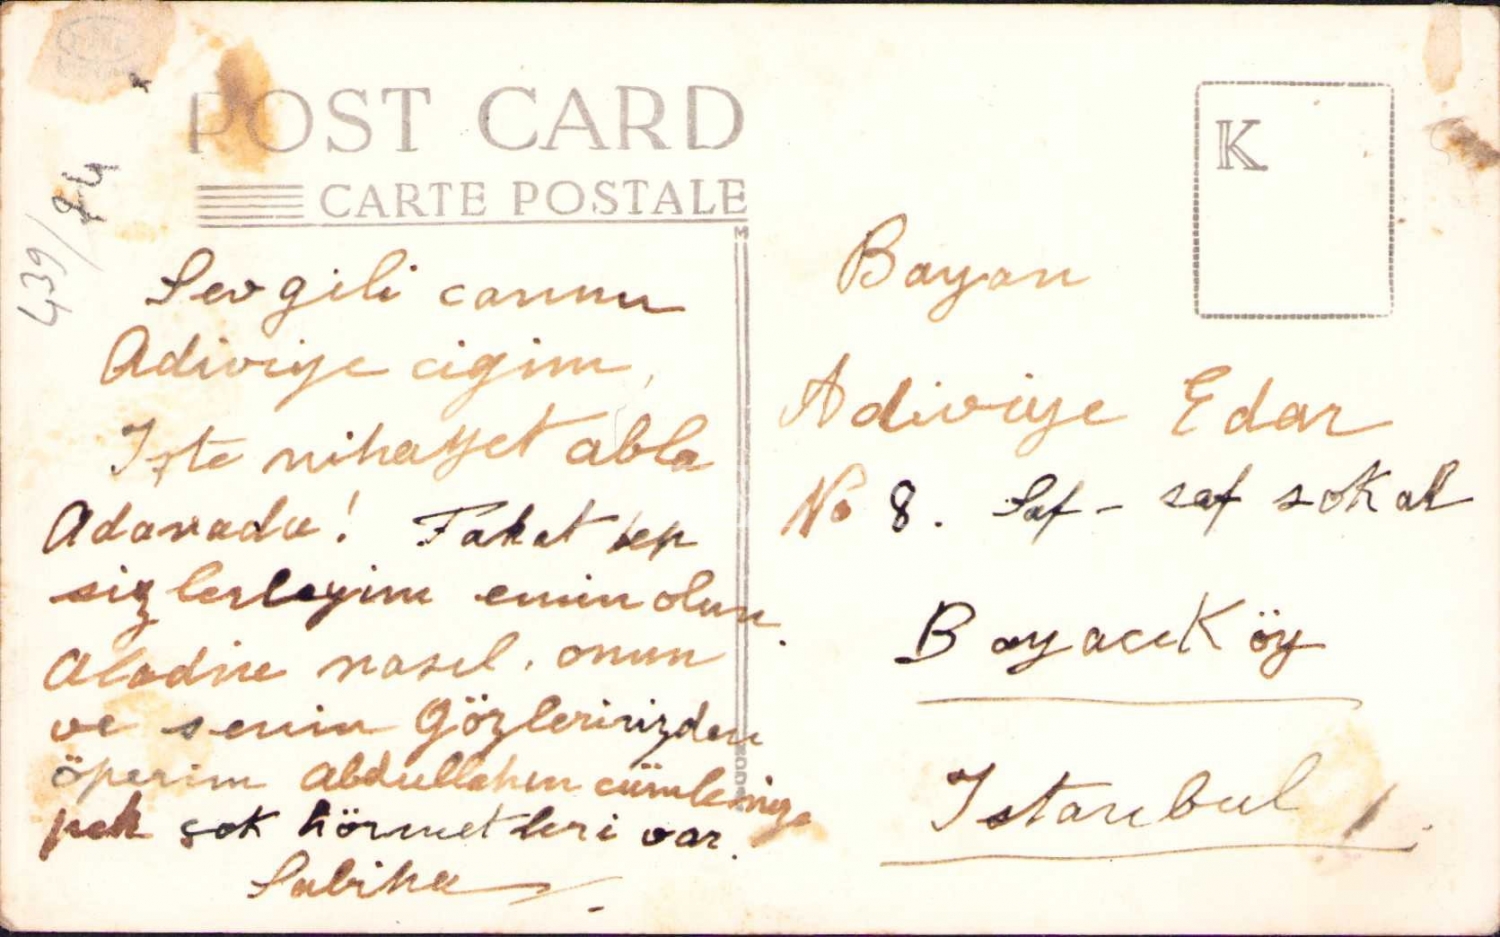 POST CARD
CARTE POSTALE
439/
K
Sevgili canım
Adiviye ciğim,
İşte nihayet abla
Adanada! Fakat hep
sizlerleyim emin olun.
Aladine nasıl. onun
ve senin gözlerinizden
öperim Abdullahın cümlenize
pek çok hörmetleri var.
Sabiha
Bayan
Adiviye Edar
No 8. Saf-saf sokak
BoyacıKöy
Istanbul